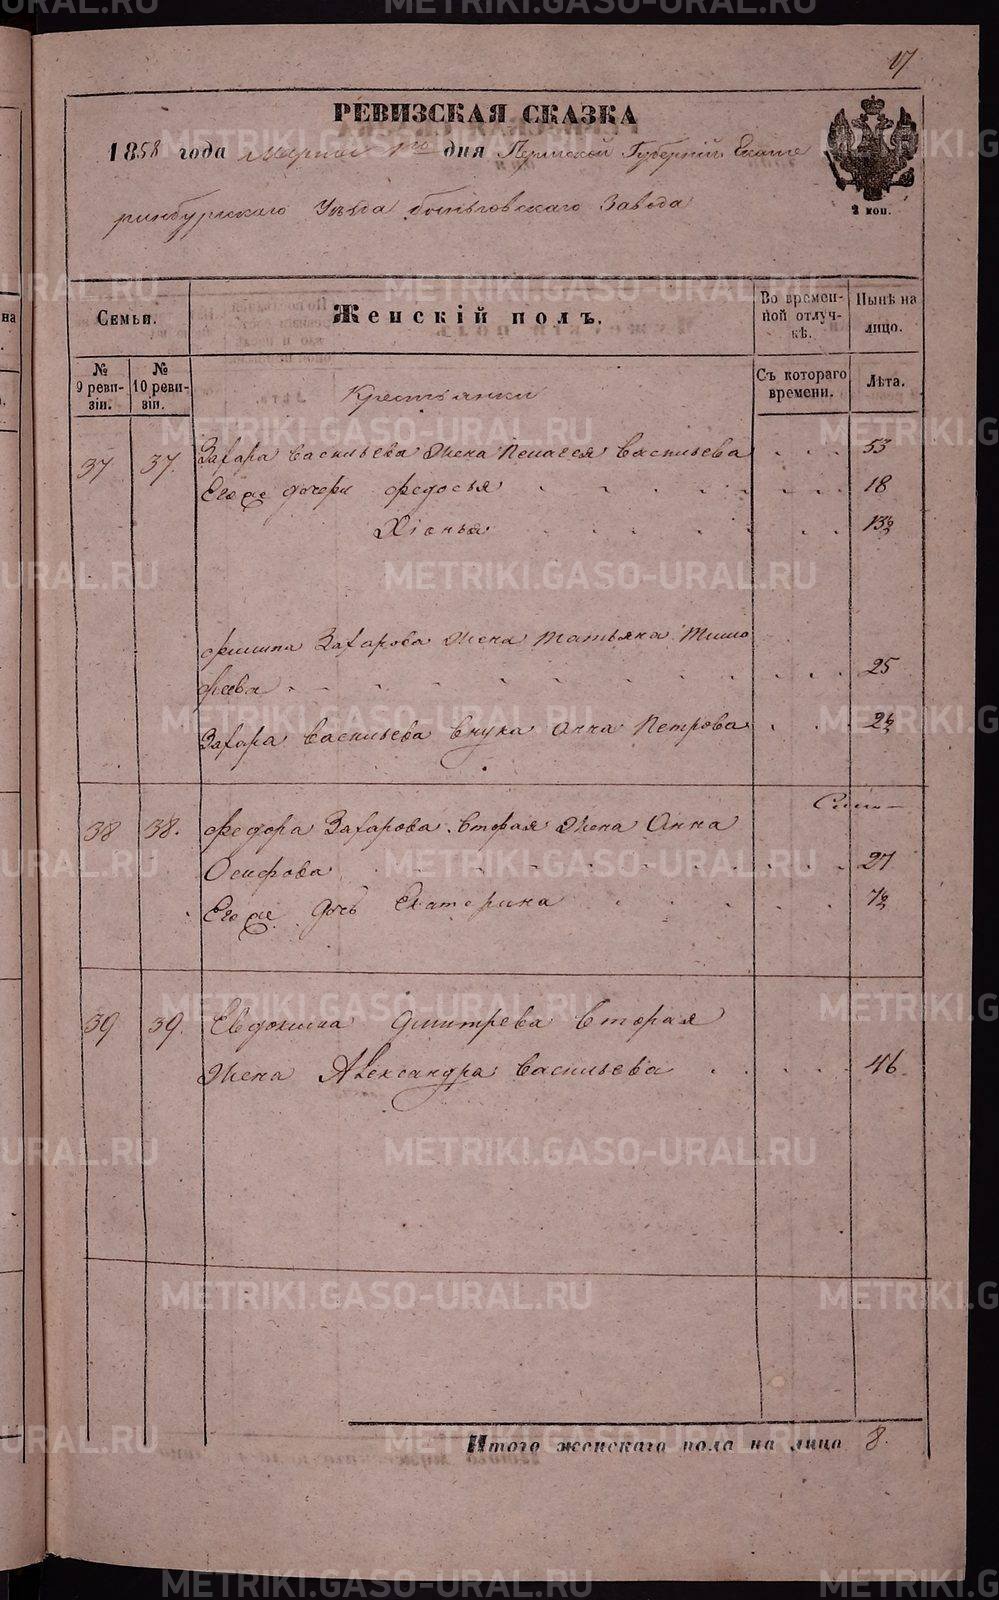 17
РЕВИЗСКАЯ СКАЗКА
1858 года Марта 1го дня Пермской Губернiи Екате
ринбургскаго Уѣзда Быньговскаго Завода
2 коп.
Семьи.
Женскiй полъ.
Во времен-
ной отлуч-
кѣ.
Нынѣ на
лицо.
№
9 реви-
зiи.
№
10 реви-
зiи.
Съ котораго
времени.
Лѣта.
Крестьянки
37 37. Захара Васильева Жена Пелагея Васильева 53
Его же дочери Федосья 18
Хiонья 13½
Филипа Захарова Жена Татьяна Тимо
феева 25
Захара Васильева Внука Анна Петрова 2½
38 38. Федора Захарова Вторая Жена Анна
Осифова 27
Его же дочь Екатерина 7½
39 39. Евдокима Дмитрева Вторая
Жена Александра Васильева 46.
Итого женскаго пола на лицо 8.
METRIKI.GASO-URAL.RU